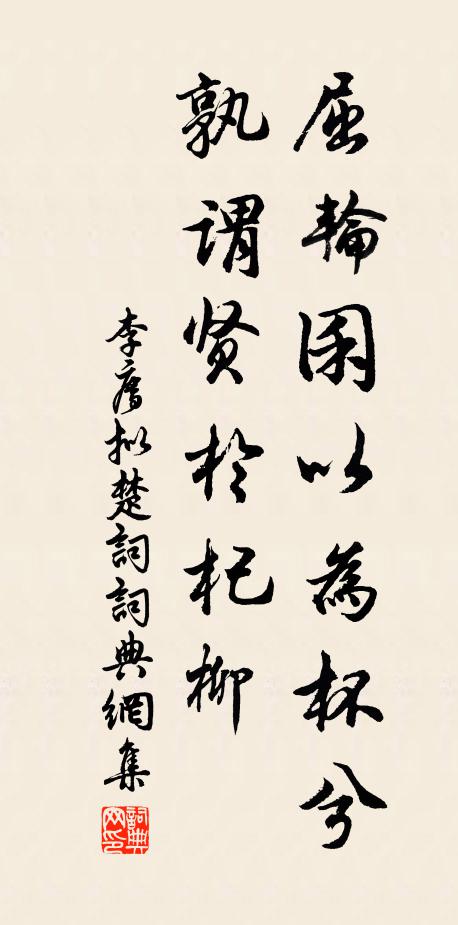 屈輪囷以為杯兮
孰謂贤於杞柳
李廌拟楚詞詞典網集
詞典
网印